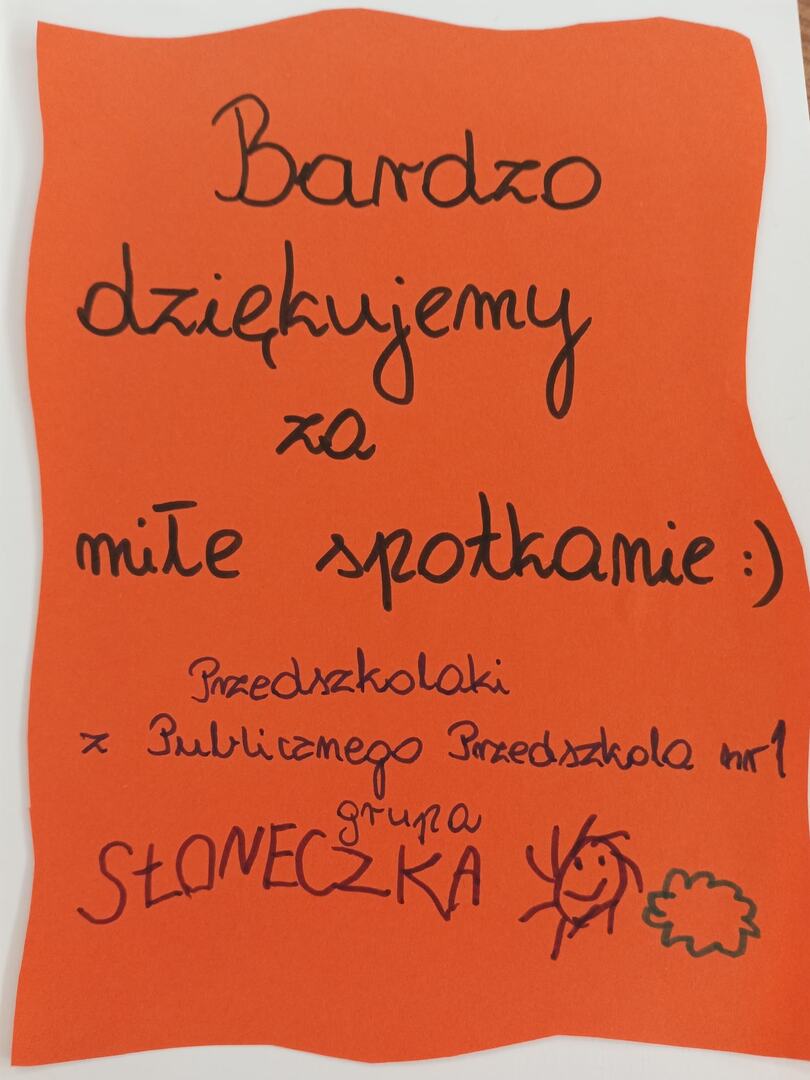 Bardzo
dziękujemy
za
miłe spotkanie :)
Przedszkolaki
z Publicznego Przedszkola nr 1
grupa
SŁONECZKA